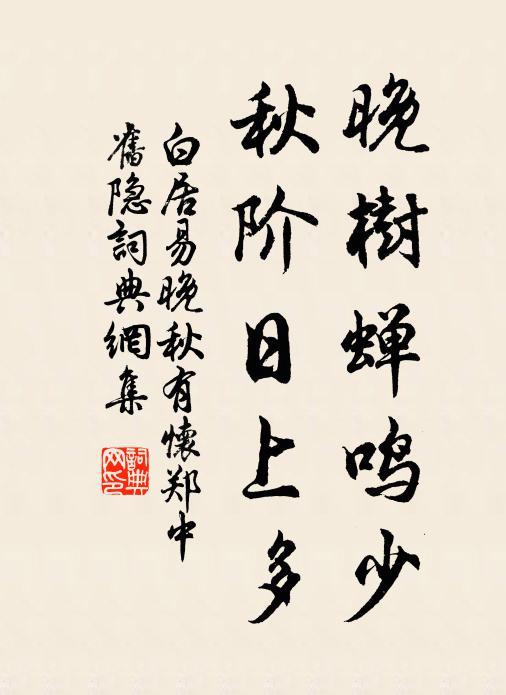 晚樹蝉鸣少
秋阶日上多
白居易晚秋有懷郑中
舊隐詞典網集
詞典网印